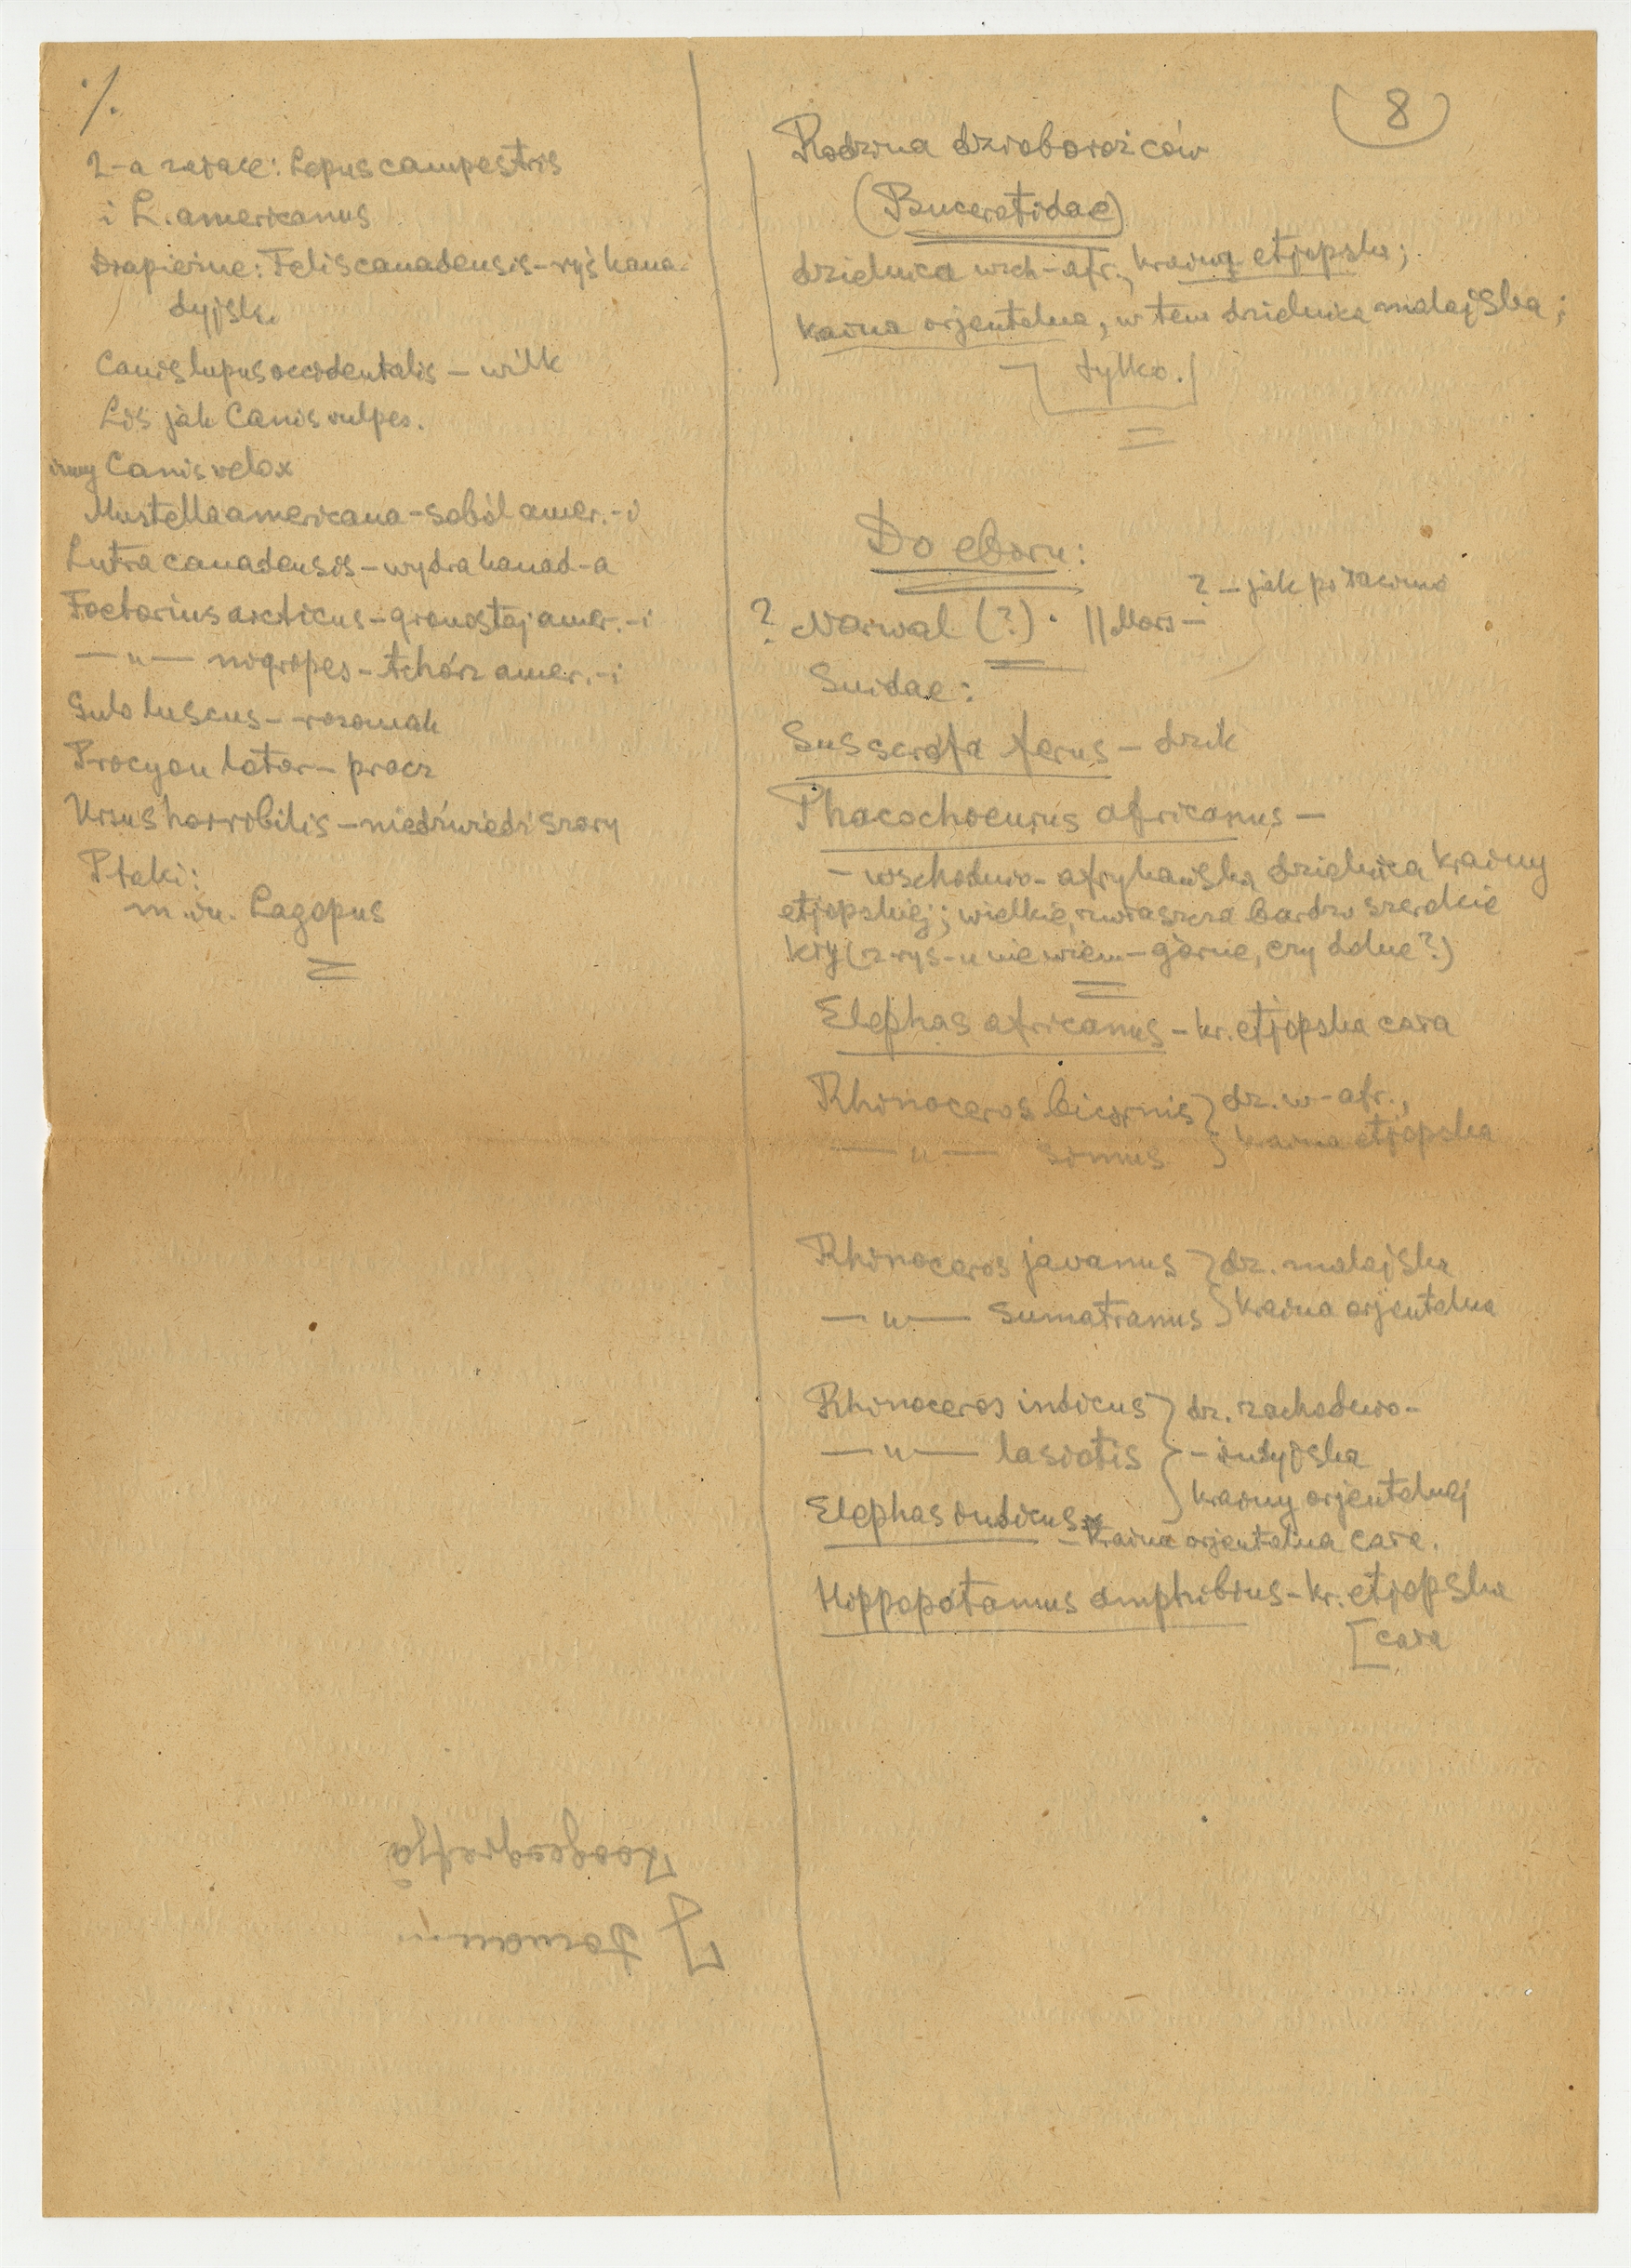 ./.
2-a zające: Lepus campestris
i L. americanus
Drapieżne: Felis canadensis - ryś kana-
dyjsk.
Canis lupus occidentalis - wilk
Lis jak Canis vulpes.
inny Canis velox
Mustella americana - soból amer.-i
Lutra canadensis - wydra kanad-a
Foetorius arcticus - gronostaj amer.-i
—„— nigripes - tchórz amer.-i
Gulo luscus - rosomak
Procyon lotor - pracz
Ursus horribilis - niedźwiedź szary
Ptaki:
m. in. Lagopus
Zoogeografja
J
8
Rodzina dzioborożców
(Buceratidae)
dzielnica wsch-afr., kraina etjopska;
kaina orjentalna, w tem dzielnica malajska;
tylko.
Do eboru:
? Narwal (?). || Mors - ? - jak po łacinie
Suidae:
Sus scrofa ferus - dzik
Phacochoeurus africanus -
- wschodnio-afrykańska dzielnica krainy
etjopskiej; wielkie, zwłaszcza bardzo szerokie
kły (z rys-u nie wiem - górne, czy dolne?)
Elephas africanus - kr. etjopska cała
Rhinoceros bicornis } dz. w-afr.,
—„— simus } kraina etjopska
Rhinoceros javanus } dz. malajska
—„— sumatranus } kraina orjentalna
Rhinoceros indicus } dz. zachodnio-
—„— lasiotis } - indyjska
krainy orjentalnej
Elephas indicus - kraina orjentalna cała.
Hippopotamus amphibius - kr. etjopska
[cała